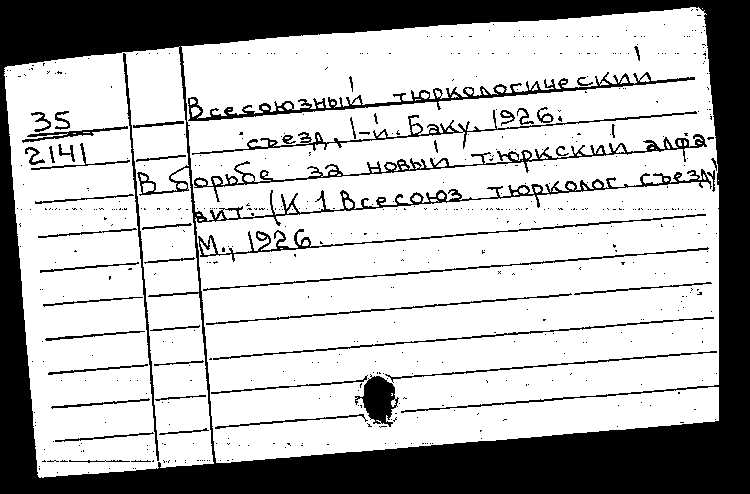 35
2141
Всесоюзный тюркологический
съезд, 1-й. Баку. 1926.
В борьбе за новый тюркский алфа-
вит. (К 1 Всесоюз. тюрколог. съезду)
М., 1926.